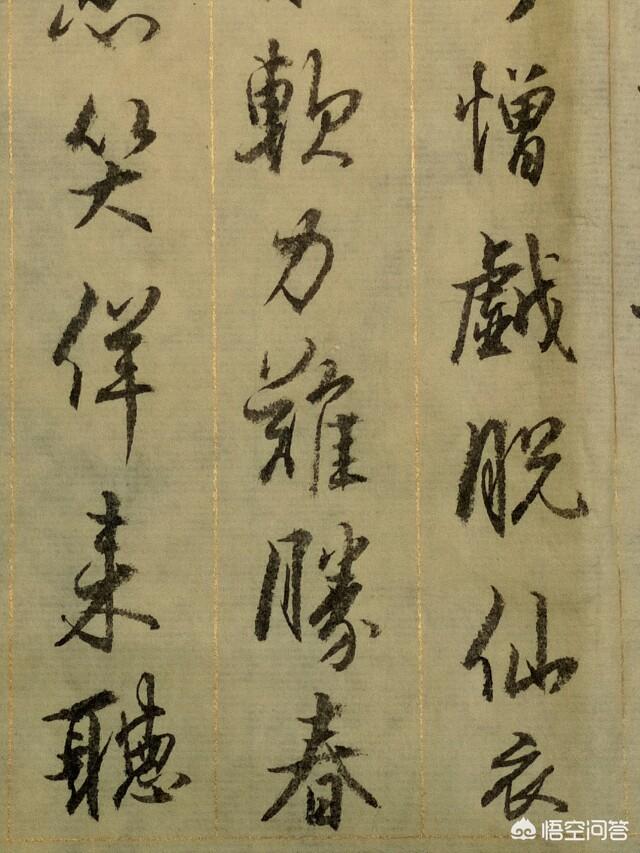 憎戲脱仙衣
軟力難勝春
笑佯来聽
悟空问答